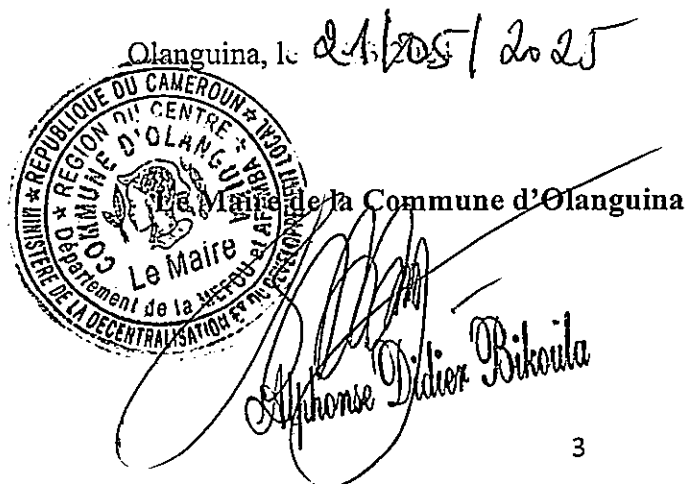 Olanguina, le 21/05/2025
MINISTERE DE LA DECENTRALISATION ET DU DEVELOPPEMENT LOCAL
REPUBLIQUE DU CAMEROUN
REGION DU CENTRE
Département de la MEFOU et AFAMBA
COMMUNE D'OLANGUINA
Le Maire
Le Maire de la Commune d'Olanguina
Alphonse Didier Bikoula
3